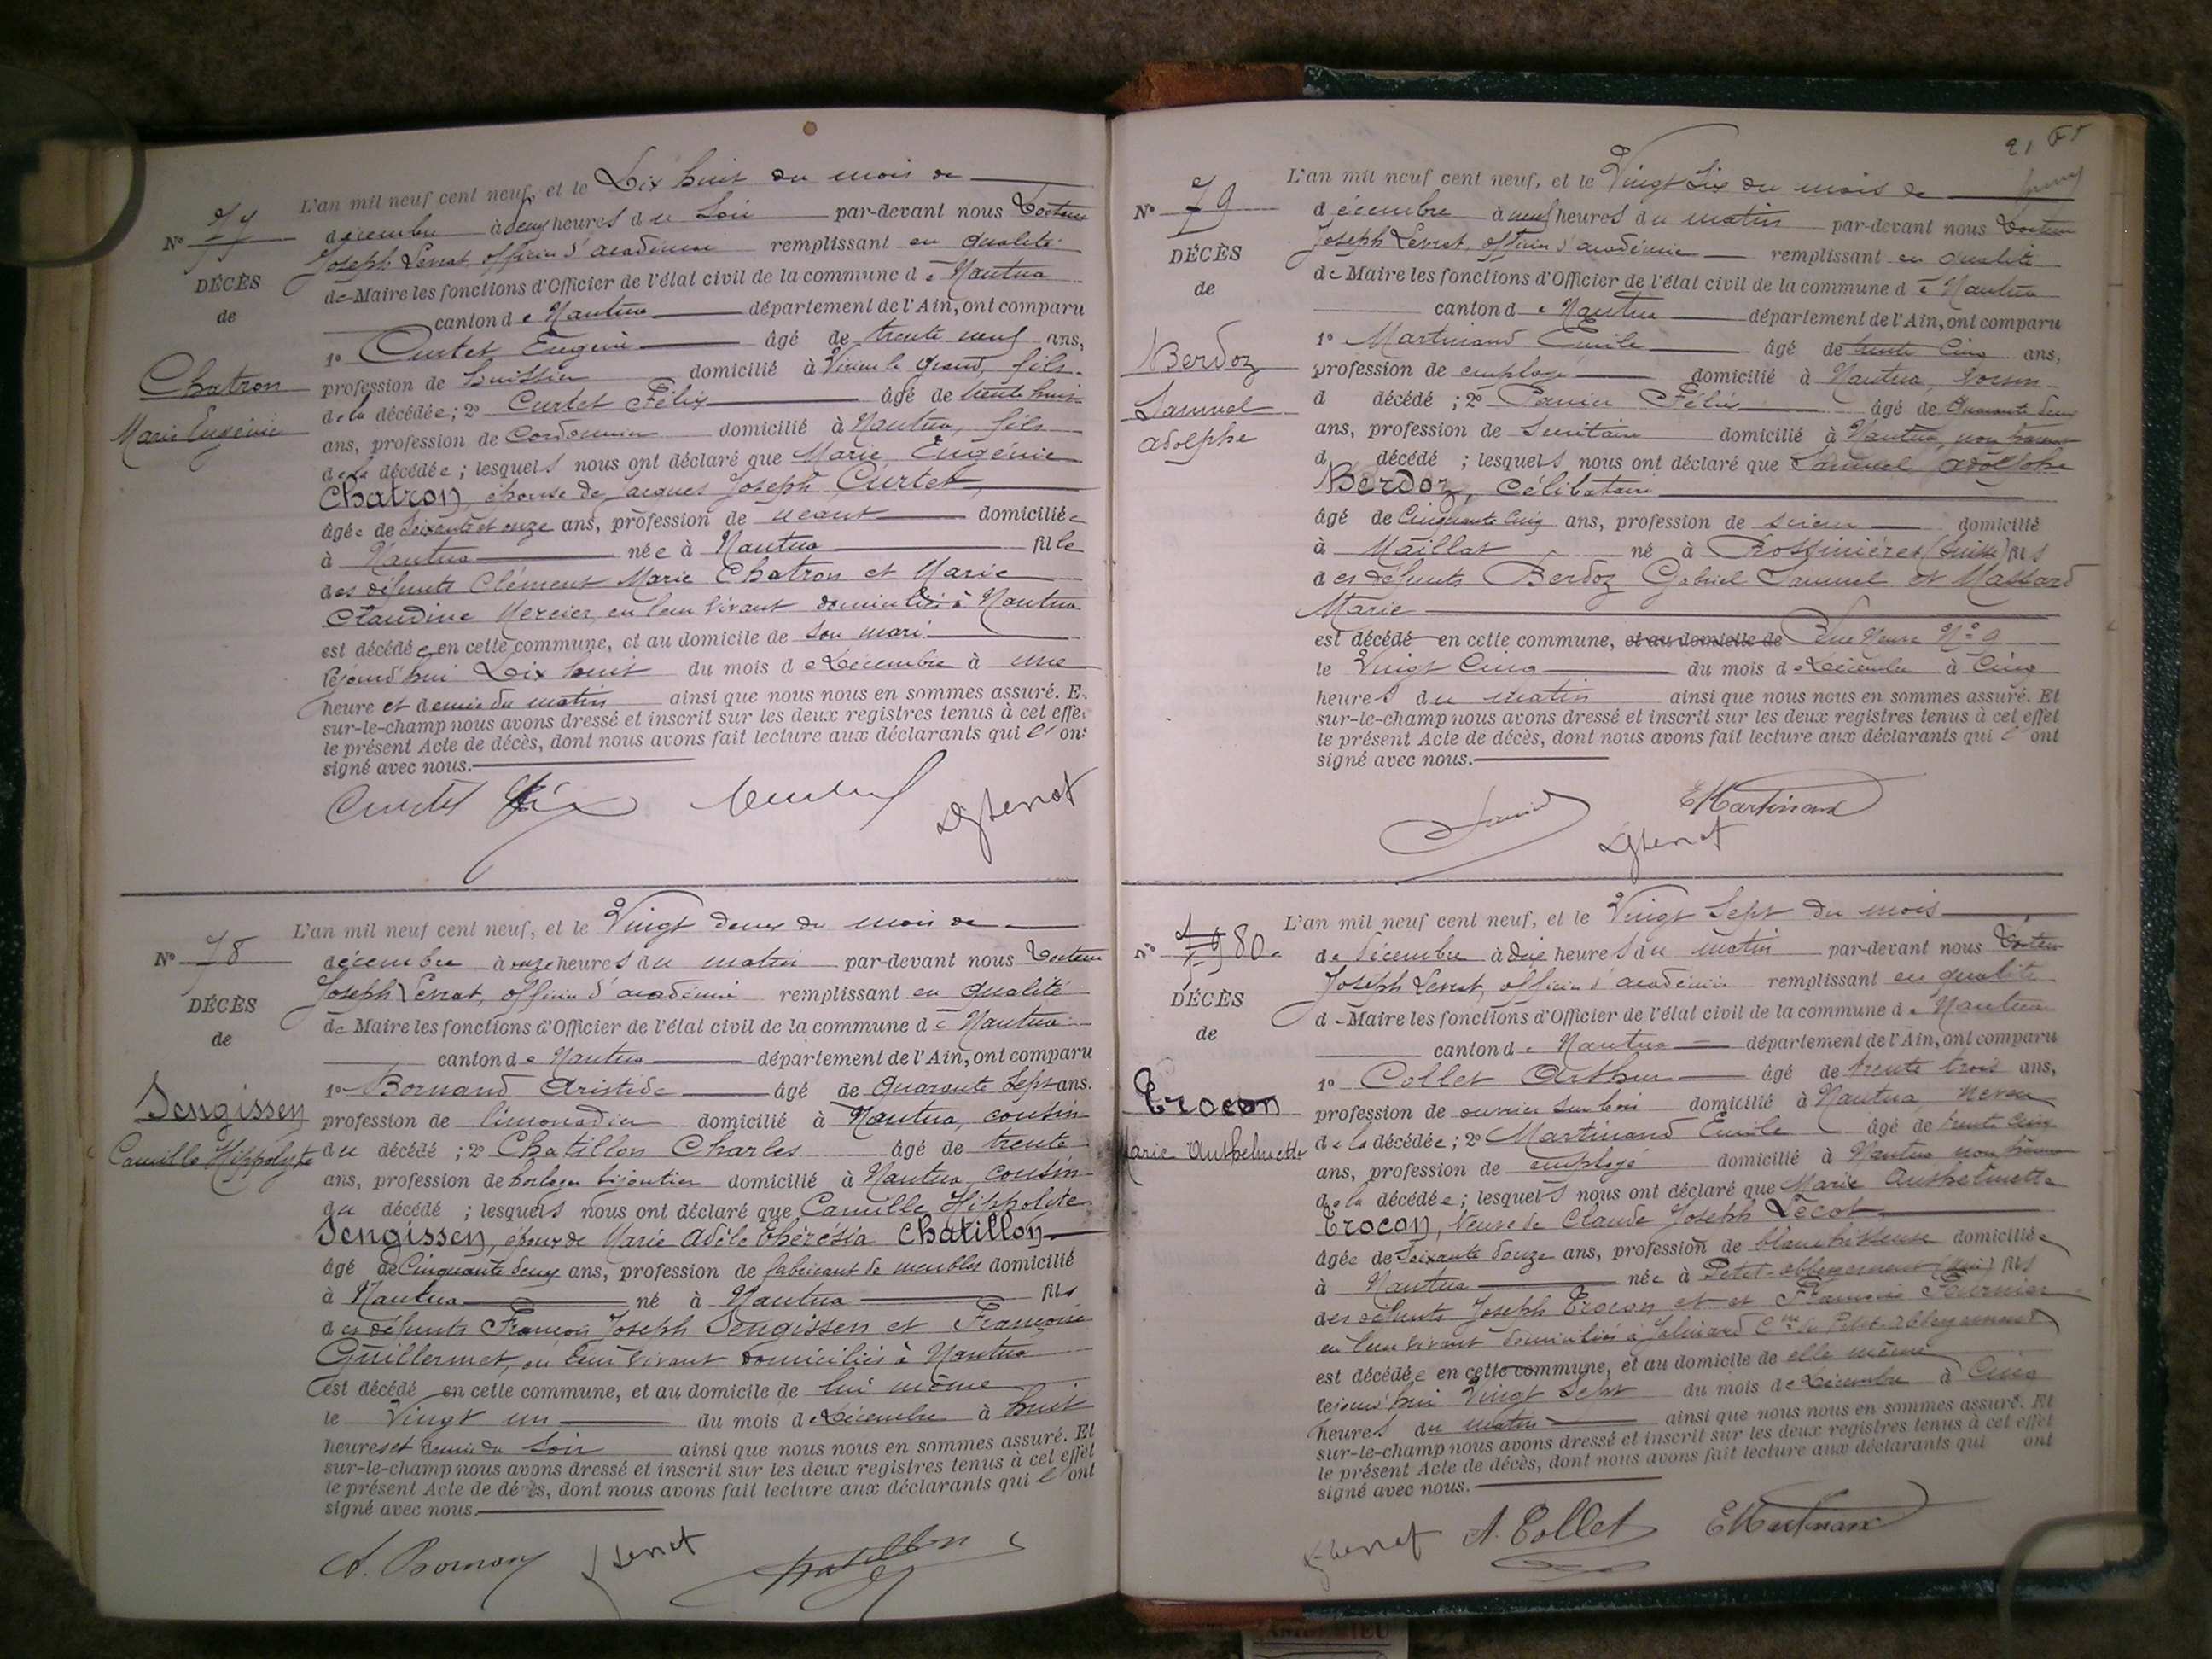 L'an mil neuf cent neuf, et le Dix huit du mois de
N° 77 décembre à deux heures du Soir par-devant nous Docteur
Joseph Levrat, officier d'académie remplissant en qualité
DÉCÈS de Maire les fonctions d'Officier de l'état civil de la commune de Nantua
de canton de Nantua département de l'Ain, ont comparu
1° Curtet Eugène âgé de trente neuf ans,
Chatron profession de huissier domicilié à Virieu le Grand, fils
de la décédée; 2° Curtet Félix âgé de trente huit
Marie Eugénie ans, profession de Cordonnier domicilié à Nantua, fils
de la décédée; lesquels nous ont déclaré que Marie Eugénie
Chatron, épouse de Jacques Joseph Curtet,
âgée de Soixante et onze ans, profession de néant domiciliée
à Nantua née à Nantua fille
des défunts Clément Marie Chatron et Marie
Claudine Mercier, en leur vivant domiciliés à Nantua
est décédée en cette commune, et au domicile de son mari
cejourd'hui Dix huit du mois de Décembre à une
heure et demie du matin ainsi que nous nous en sommes assuré. E
sur-le-champ nous avons dressé et inscrit sur les deux registres tenus à cet effe
le présent Acte de décès, dont nous avons fait lecture aux déclarants qui l'ont
signé avec nous.
Curtet Félix Dr J Levrat
L'an mil neuf cent neuf, et le Vingt deux du mois de
N° 78 décembre à onze heures du matin par-devant nous Docteur
Joseph Levrat, officier d'académie remplissant en qualité
DÉCÈS de Maire les fonctions d'Officier de l'état civil de la commune de Nantua
de canton de Nantua département de l'Ain, ont comparu
1° Bornand Aristide âgé de Quarante Sept ans.
Jengissen profession de limonadier domicilié à Nantua, cousin
Camille Hippolyte du décédé; 2° Chatillon Charles âgé de trente
ans, profession de horloger bijoutier domicilié à Nantua, cousin
du décédé; lesquels nous ont déclaré que Camille Hippolyte
Jengissen, époux de Marie Adèle Thérésia Chatillon
âgé de Cinquante deux ans, profession de fabricant de meubles domicilié
à Nantua né à Nantua fils
des défunts François Joseph Jengissen et Françoise
Guillermet, en leur vivant domiciliés à Nantua
est décédé en cette commune, et au domicile de lui même
le Vingt un du mois de Décembre à huit
heures et demie du Soir ainsi que nous nous en sommes assuré. Et
sur-le-champ nous avons dressé et inscrit sur les deux registres tenus à cet effet
le présent Acte de décès, dont nous avons fait lecture aux déclarants qui l'ont
signé avec nous.
A. Bornand J Levrat Chatillon
21
L'an mil neuf cent neuf, et le Vingt Six du mois de
N° 79 décembre à neuf heures du matin par-devant nous Docteur
Joseph Levrat, officier d'académie remplissant en qualité
DÉCÈS de Maire les fonctions d'Officier de l'état civil de la commune de Nantua
de canton de Nantua département de l'Ain, ont comparu
1° Martinand Emile âgé de trente cinq ans,
Berdoz profession de employé domicilié à Nantua, voisin
Samuel d décédé; 2° Félix âgé de Quarante deux
Adolphe ans, profession de domicilié à Nantua, non parent
d décédé; lesquels nous ont déclaré que Samuel Adolphe
Berdoz, célibataire
âgé de Cinquante Cinq ans, profession de scieur domicilié
à Maillat né à Rossinières (Suisse) fils
des défunts Berdoz Gabriel Samuel et Massard
Marie
est décédé en cette commune, et au domicile de Rue Neuve N° 9
le Vingt Cinq du mois de Décembre à Cinq
heures du matin ainsi que nous nous en sommes assuré. Et
sur-le-champ nous avons dressé et inscrit sur les deux registres tenus à cet effet
le présent Acte de décès, dont nous avons fait lecture aux déclarants qui l'ont
signé avec nous.
E Martinand
Dr J Levrat
L'an mil neuf cent neuf, et le Vingt Sept du mois
N° 79 80 de Décembre à dix heures du matin par-devant nous Docteur
Joseph Levrat, officier d'académie remplissant en qualité
DÉCÈS de Maire les fonctions d'Officier de l'état civil de la commune de Nantua
de canton de Nantua département de l'Ain, ont comparu
1° Collet Arthur âgé de trente trois ans,
Trocon profession de ouvrier sur bois domicilié à Nantua, neveu
de la décédée; 2° Martinand Emile âgé de trente cinq
Marie Anthelmette ans, profession de employé domicilié à Nantua non parent
de la décédée; lesquels nous ont déclaré que Marie Anthelmette
Trocon, Veuve de Claude Joseph Lécot
âgée de Soixante douze ans, profession de blanchisseuse domiciliée
à Nantua née à Petit-Abbergement (Ain) fils
des défunts Joseph Trocon et et Françoise Burnier
en leur vivant domiciliés à Jalinard Cne de Petit Abbergement
est décédée en cette commune, et au domicile de elle même
cejourd'hui Vingt Sept du mois de Décembre à Cinq
heures du matin ainsi que nous nous en sommes assuré. Et
sur-le-champ nous avons dressé et inscrit sur les deux registres tenus à cet effet
le présent Acte de décès, dont nous avons fait lecture aux déclarants qui ont
signé avec nous.
J Levrat A. Collet E Martinand